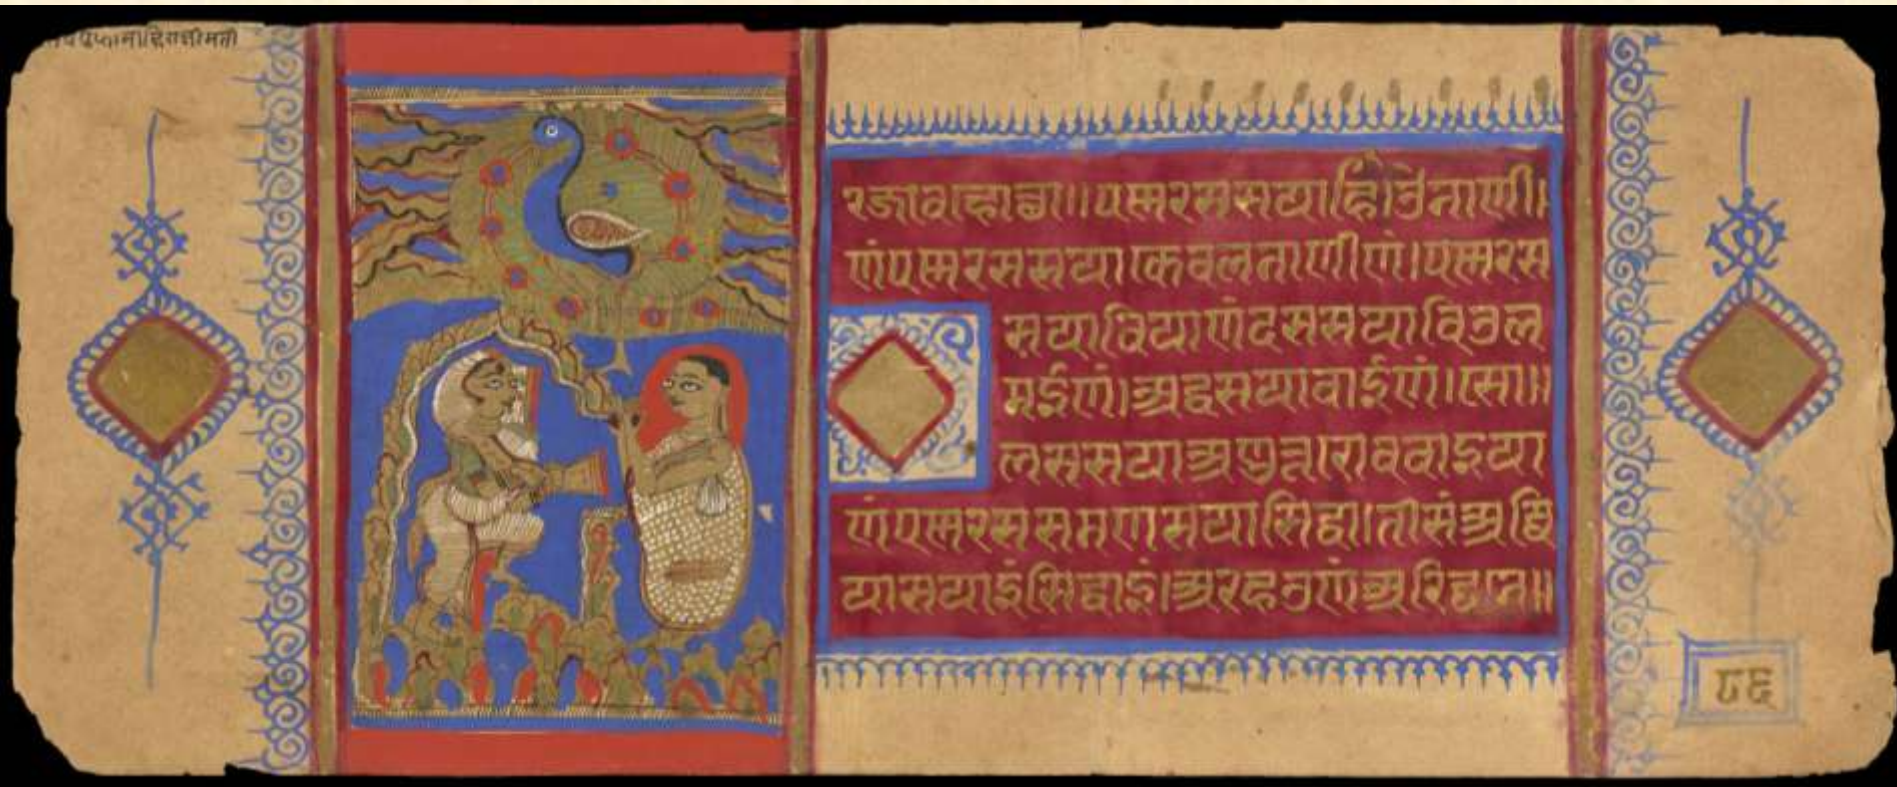 पन्नरससया
णंपन्नरससयाकेवलनाणीणं।पन्नरस
सयावेियाणंदससयाविउल
मईणं।अट्ठसयावाईणं।सो॥
लससयाअणुत्तरोववाइया
णंपन्नरससमणसयासिद्धा।तीसंअज्जि
यासयाइंसिद्धाइं।अरहउणंअरिट्ठने॥
८६